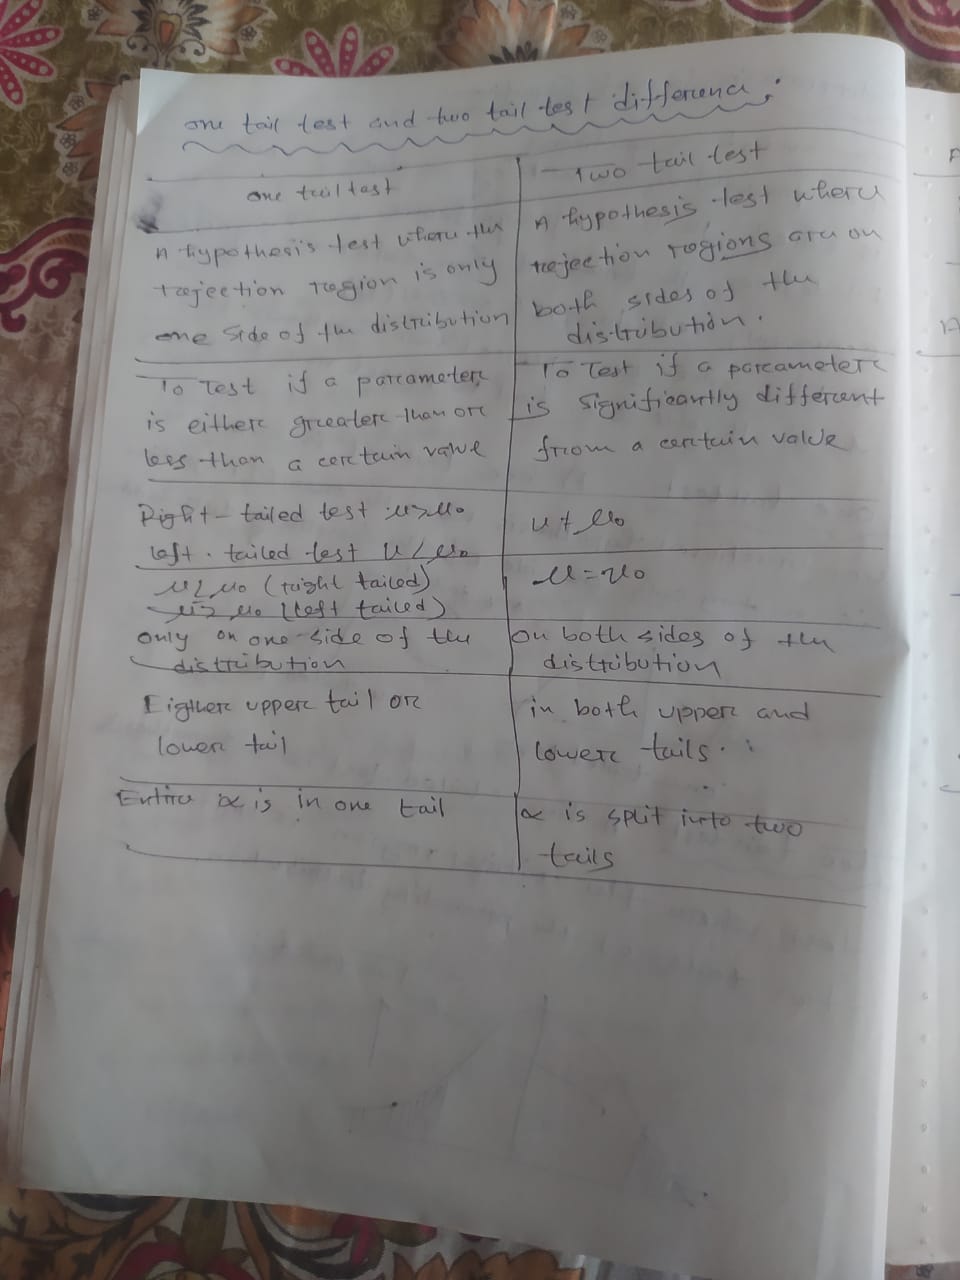 one tail test and two tail test difference :
one tail test
Two tail test
A hypothesis test where the
rejection region is only
one side of the distribution
A hypothesis test where
rejection regions are on
both sides of the
distribution.
To Test if a parameter
is either greater than or
less than a certain value
To Test if a parameter
is significantly different
from a certain value
Right-tailed test μ>μ₀
left-tailed test μ<μ₀
μ≠μ₀
μ≤μ₀ (right tailed)
μ≥μ₀ (left tailed)
μ=μ₀
only on one side of the
distribution
on both sides of the
distribution
Eigther upper tail or
lower tail
in both upper and
lower tails.
Entire α is in one tail
α is split into two
tails